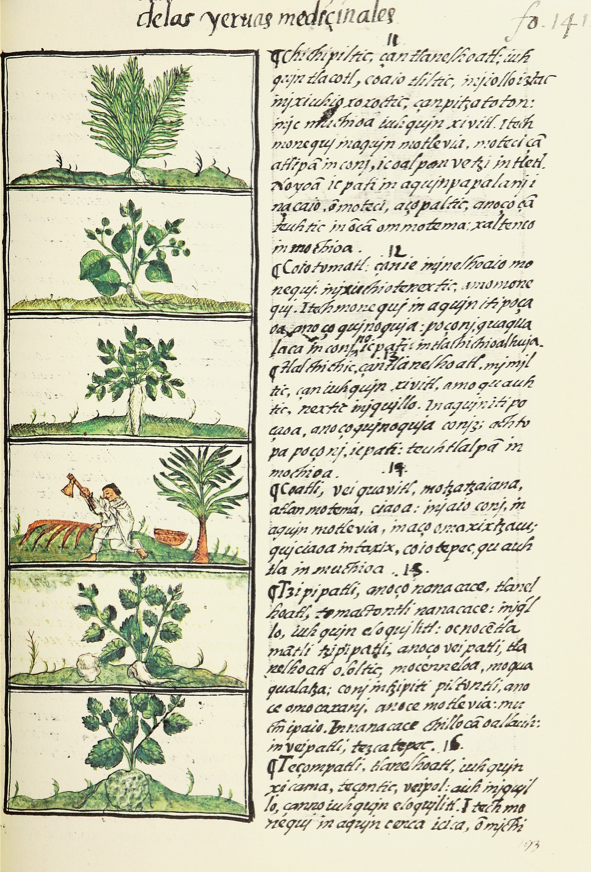 de las yeruas mediçinales
fo. 141
11
¶Chichipiltic, çan tlanelhoatl; iuh
quin tlacotl, coaio tliltic, injiollo iztac
injxiuhio xoxoctic, çan pitzatoton:
njc muchioa iuhqujn xivitl. Itech
monequj inaqujn motlevia, moteci çã
atlipã in conj, ic oalpan vetzi in tletl.
No yoã ic pati in aqujn papalanj i
nacaio, õmoteci, aço paltic, anoço çã
teuhtic in õcã ommotema: xaltenco
in mochioa.
12
¶Coiotomatl. çan ie injnelhoaio mo
nequj: injxiuhio tenextic, amo mone
quj. Itech monequj in aqujn itipoca
oa, anoço qujnoquja: poçonj, quaqua
laca in conj, ic pati: in tlachichioalhuja.
13
¶Tlalchichic, çan tlanelhoatl, mimil
tic, çan iuhqujn xivitl, amo quauh
tic, nextic injqujllo. Inaqujn iti po
çaoa, anoço qujnoquja conj: achto
pa poçonj, ic pati: teuhtlalpã in
mochioa.
14
¶Coatli, vei quavitl, motzatzaiana,
atlan motema, ciaoa: in jaio conj, in
aqujn motlevia, in aço omaxixtzacu;
qujciaoa in taxix, coiotepec, quauh
tla in muchioa
15
¶Tzipipatli, anoço nanacace, tlanel
hoatl, tomactontli nanacace: injqujl
lo, iuhqujn eloqujlitl: oc no cẽtla
mãtli tzipipatli, anoço vei patli, tla
nelhoatl ololtic, mocenneloa, moqua
qualatza; conj in tzipitl piltontli, ano
ce omocaxanj, anoce motlevia: mu
chipaio. In nanacace chillocã oallauh:
in veipatli, tezcatepec.
16
¶Tecompatli, tlanelhoatl, iuhqujn
xicama, tecontic, veipol: auh in jqujl
lo, çanno iuhqujn eloqujlitl. Itech mo
nequj in aqujn cenca icica, õmichi
193